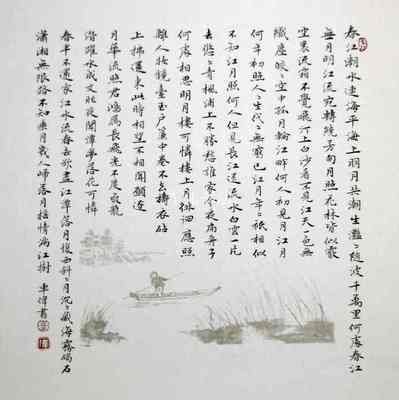 春江潮水連海平海上明月共潮生灩〻隨波千萬里何處春江
無月明江流宛轉繞芳甸月照花林皆似霰
空裏流霜不覺飛汀上白沙看不見江天一色無
纖塵皎〻空中孤月輪江畔何人初見月江月
何年初照人〻生代〻無窮已江月年〻祇相似
不知江月照何人但見長江送流水白雲一片
去悠〻青楓浦上不勝愁誰家今夜扁舟子
何處相思明月樓可憐樓上月徘徊應照
離人妝鏡臺玉戶簾中卷不去擣衣砧
上拂還來此時相望不相聞願逐
月華流照君鴻雁長飛光不度魚龍
潛躍水成文昨夜閑潭夢落花可憐
春半不還家江水流春去欲盡江潭落月復西斜〻月沉〻藏海霧碣石
瀟湘無限路不知乘月幾人歸落月搖情滿江樹 車偉書